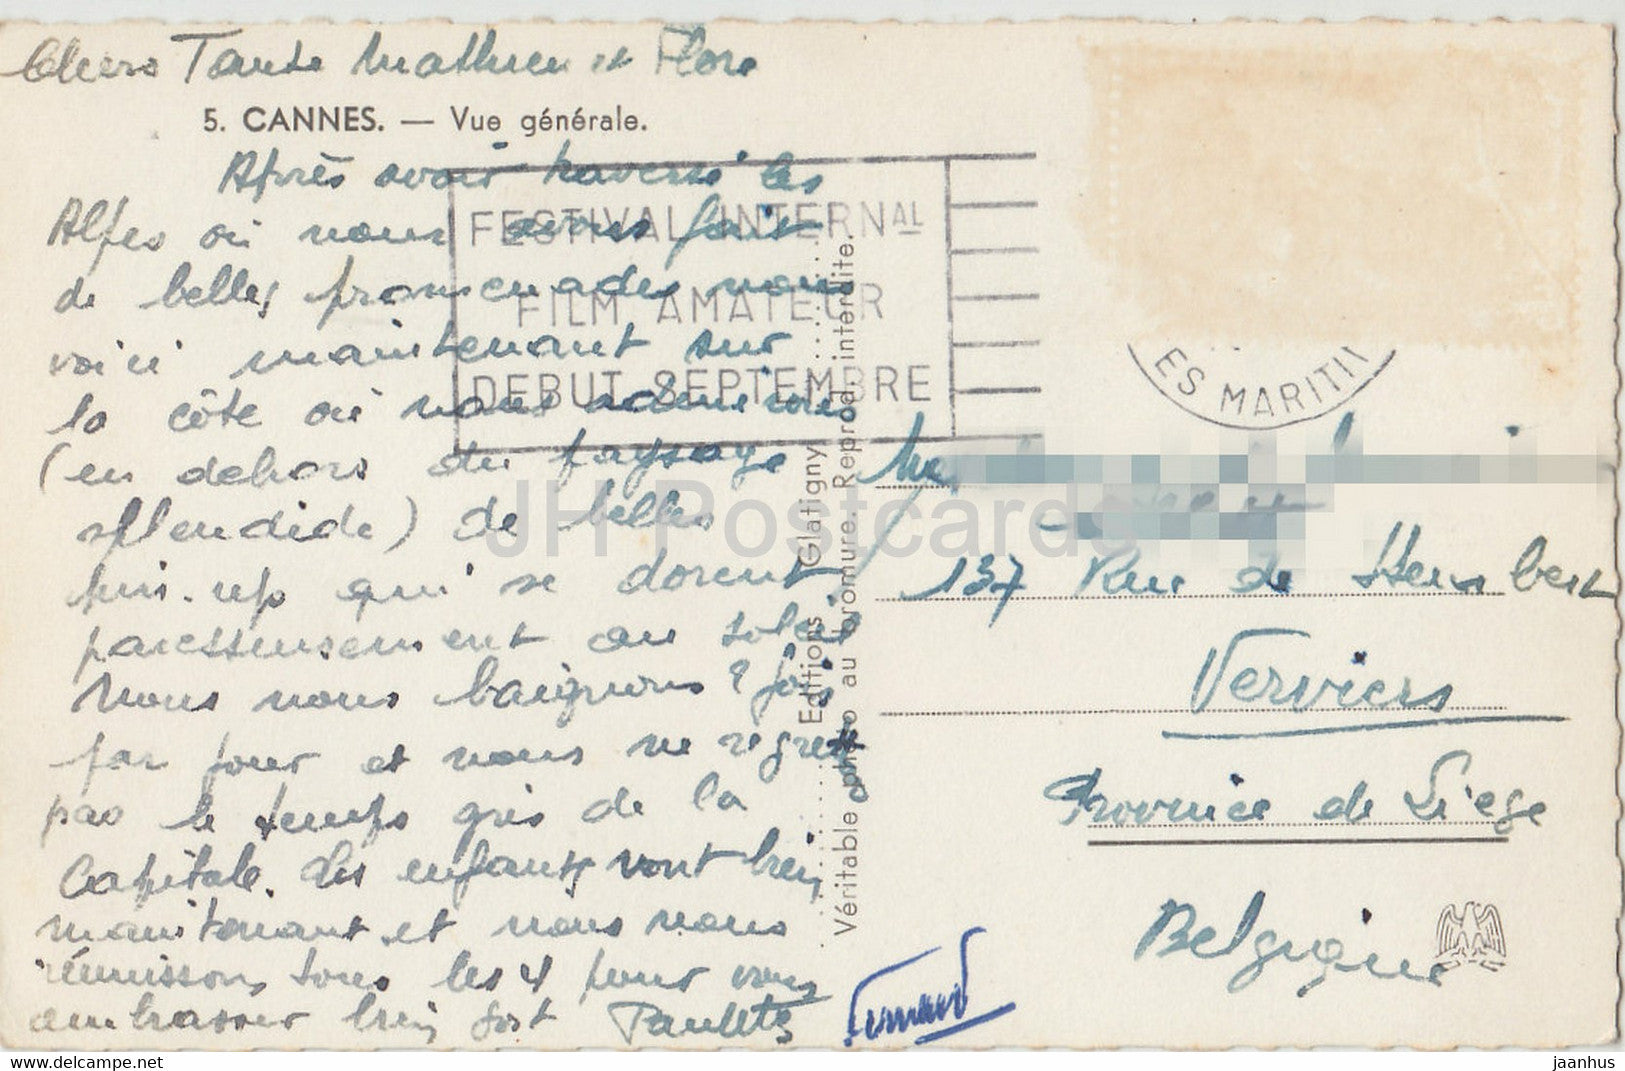 Chers Tante Mathieu et Flore
5. CANNES. — Vue générale.
Après avoir traversé les
Alpes où nous avons fait
de belles promenades nous
voici maintenant sur
la côte où nous admirons
(en dehors du paysage
splendide) de belles
pin-up qui se dorent
paresseusement au soleil
Nous nous baignons 2 fois
par jour et nous ne regrett
pas le temps gris de la
Capitale. Les enfants vont bien
maintenant et nous nous
réunissons tous les 4 pour vous
embrasser bien fort Paulette
Fernand
FESTIVAL INTERNAL
FILM AMATEUR
DEBUT SEPTEMBRE
ES MARITI
Editions Glatigny
Véritable photo au bromure. Reprod. interdite.
137 Rue de
Verviers
Province de Liège
Belgique
JH Postcards
hippostcard.com
jaanhus